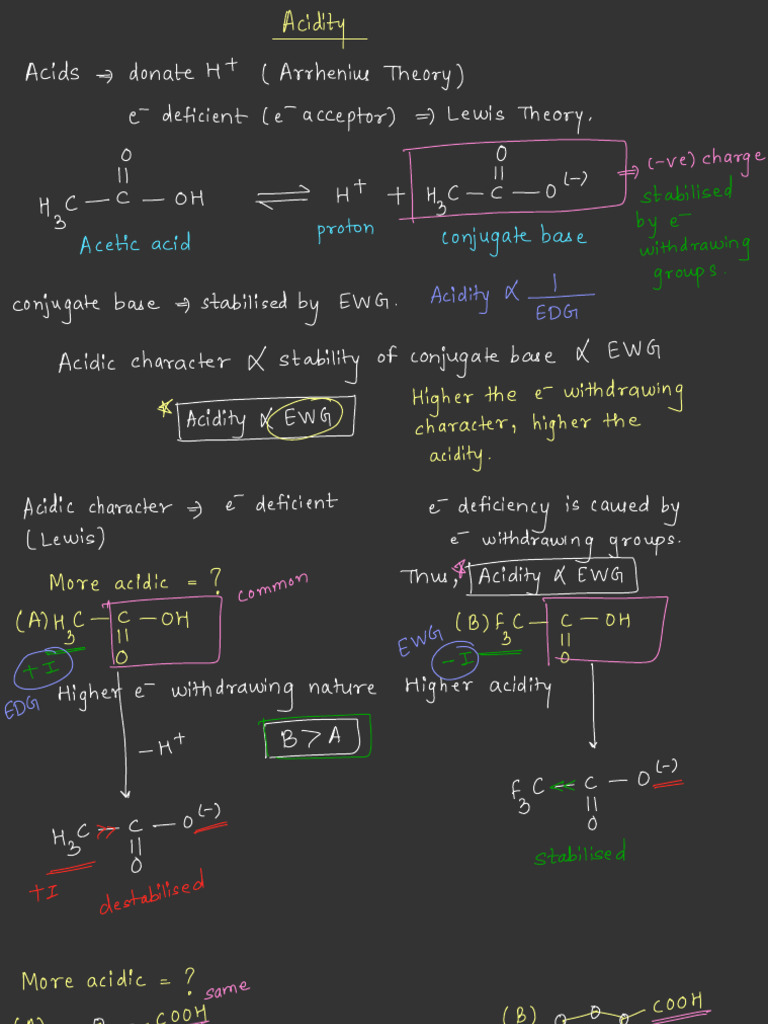 Acidity
Acids → donate H⁺ ( Arrhenius Theory)
e⁻ deficient (e⁻ acceptor) ⇒ Lewis Theory.
O
||
H₃C — C — OH ⇌ H⁺ + H₃C — C — O(-)
O
||
⇒ (-ve) charge
stabilised
by e⁻
withdrawing
groups.
Acetic acid
proton
conjugate base
conjugate base ⇒ stabilised by EWG.
Acidity ∝ 1
EDG
Acidic character ∝ stability of conjugate base ∝ EWG
Acidity ∝ EWG
Higher the e⁻ withdrawing
character, higher the
acidity.
Acidic character ⇒ e⁻ deficient
(Lewis)
e⁻ deficiency is caused by
e⁻ withdrawing groups.
Thus, Acidity ∝ EWG
More acidic = ?
common
(A) H₃C — C — OH
||
O
+I
EDG
(B) F₃C — C — OH
||
O
EWG
-I
Higher e⁻ withdrawing nature Higher acidity
B > A
-H⁺
H₃C — C — O(-)
||
O
+I
destabilised
F₃C — C — O(-)
||
O
stabilised
More acidic = ?
same
(A) COOH
(B) COOH